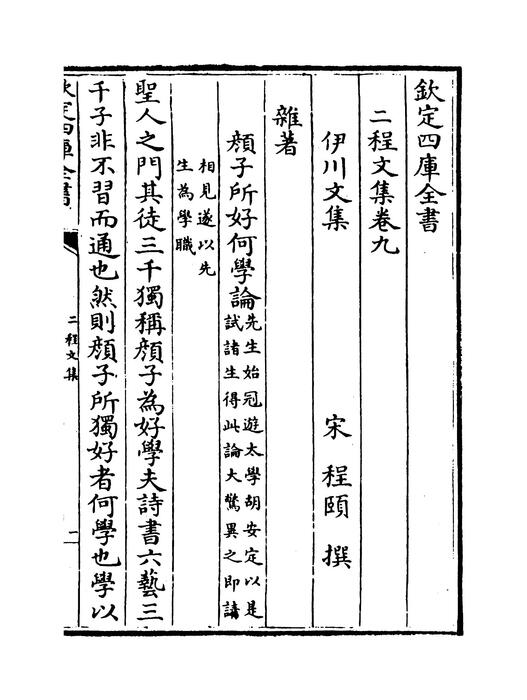 欽定四庫全書
二程文集卷九
伊川文集 宋 程頤 撰
雜著
顔子所好何學論先生始冠遊太學胡安定以是
試諸生得此論大驚異之即請
相見遂以先
生為學職
聖人之門其徒三千獨稱顔子為好學夫詩書六藝三
千子非不習而通也然則顔子所獨好者何學也學以
欽定四庫全書 二程文集 一